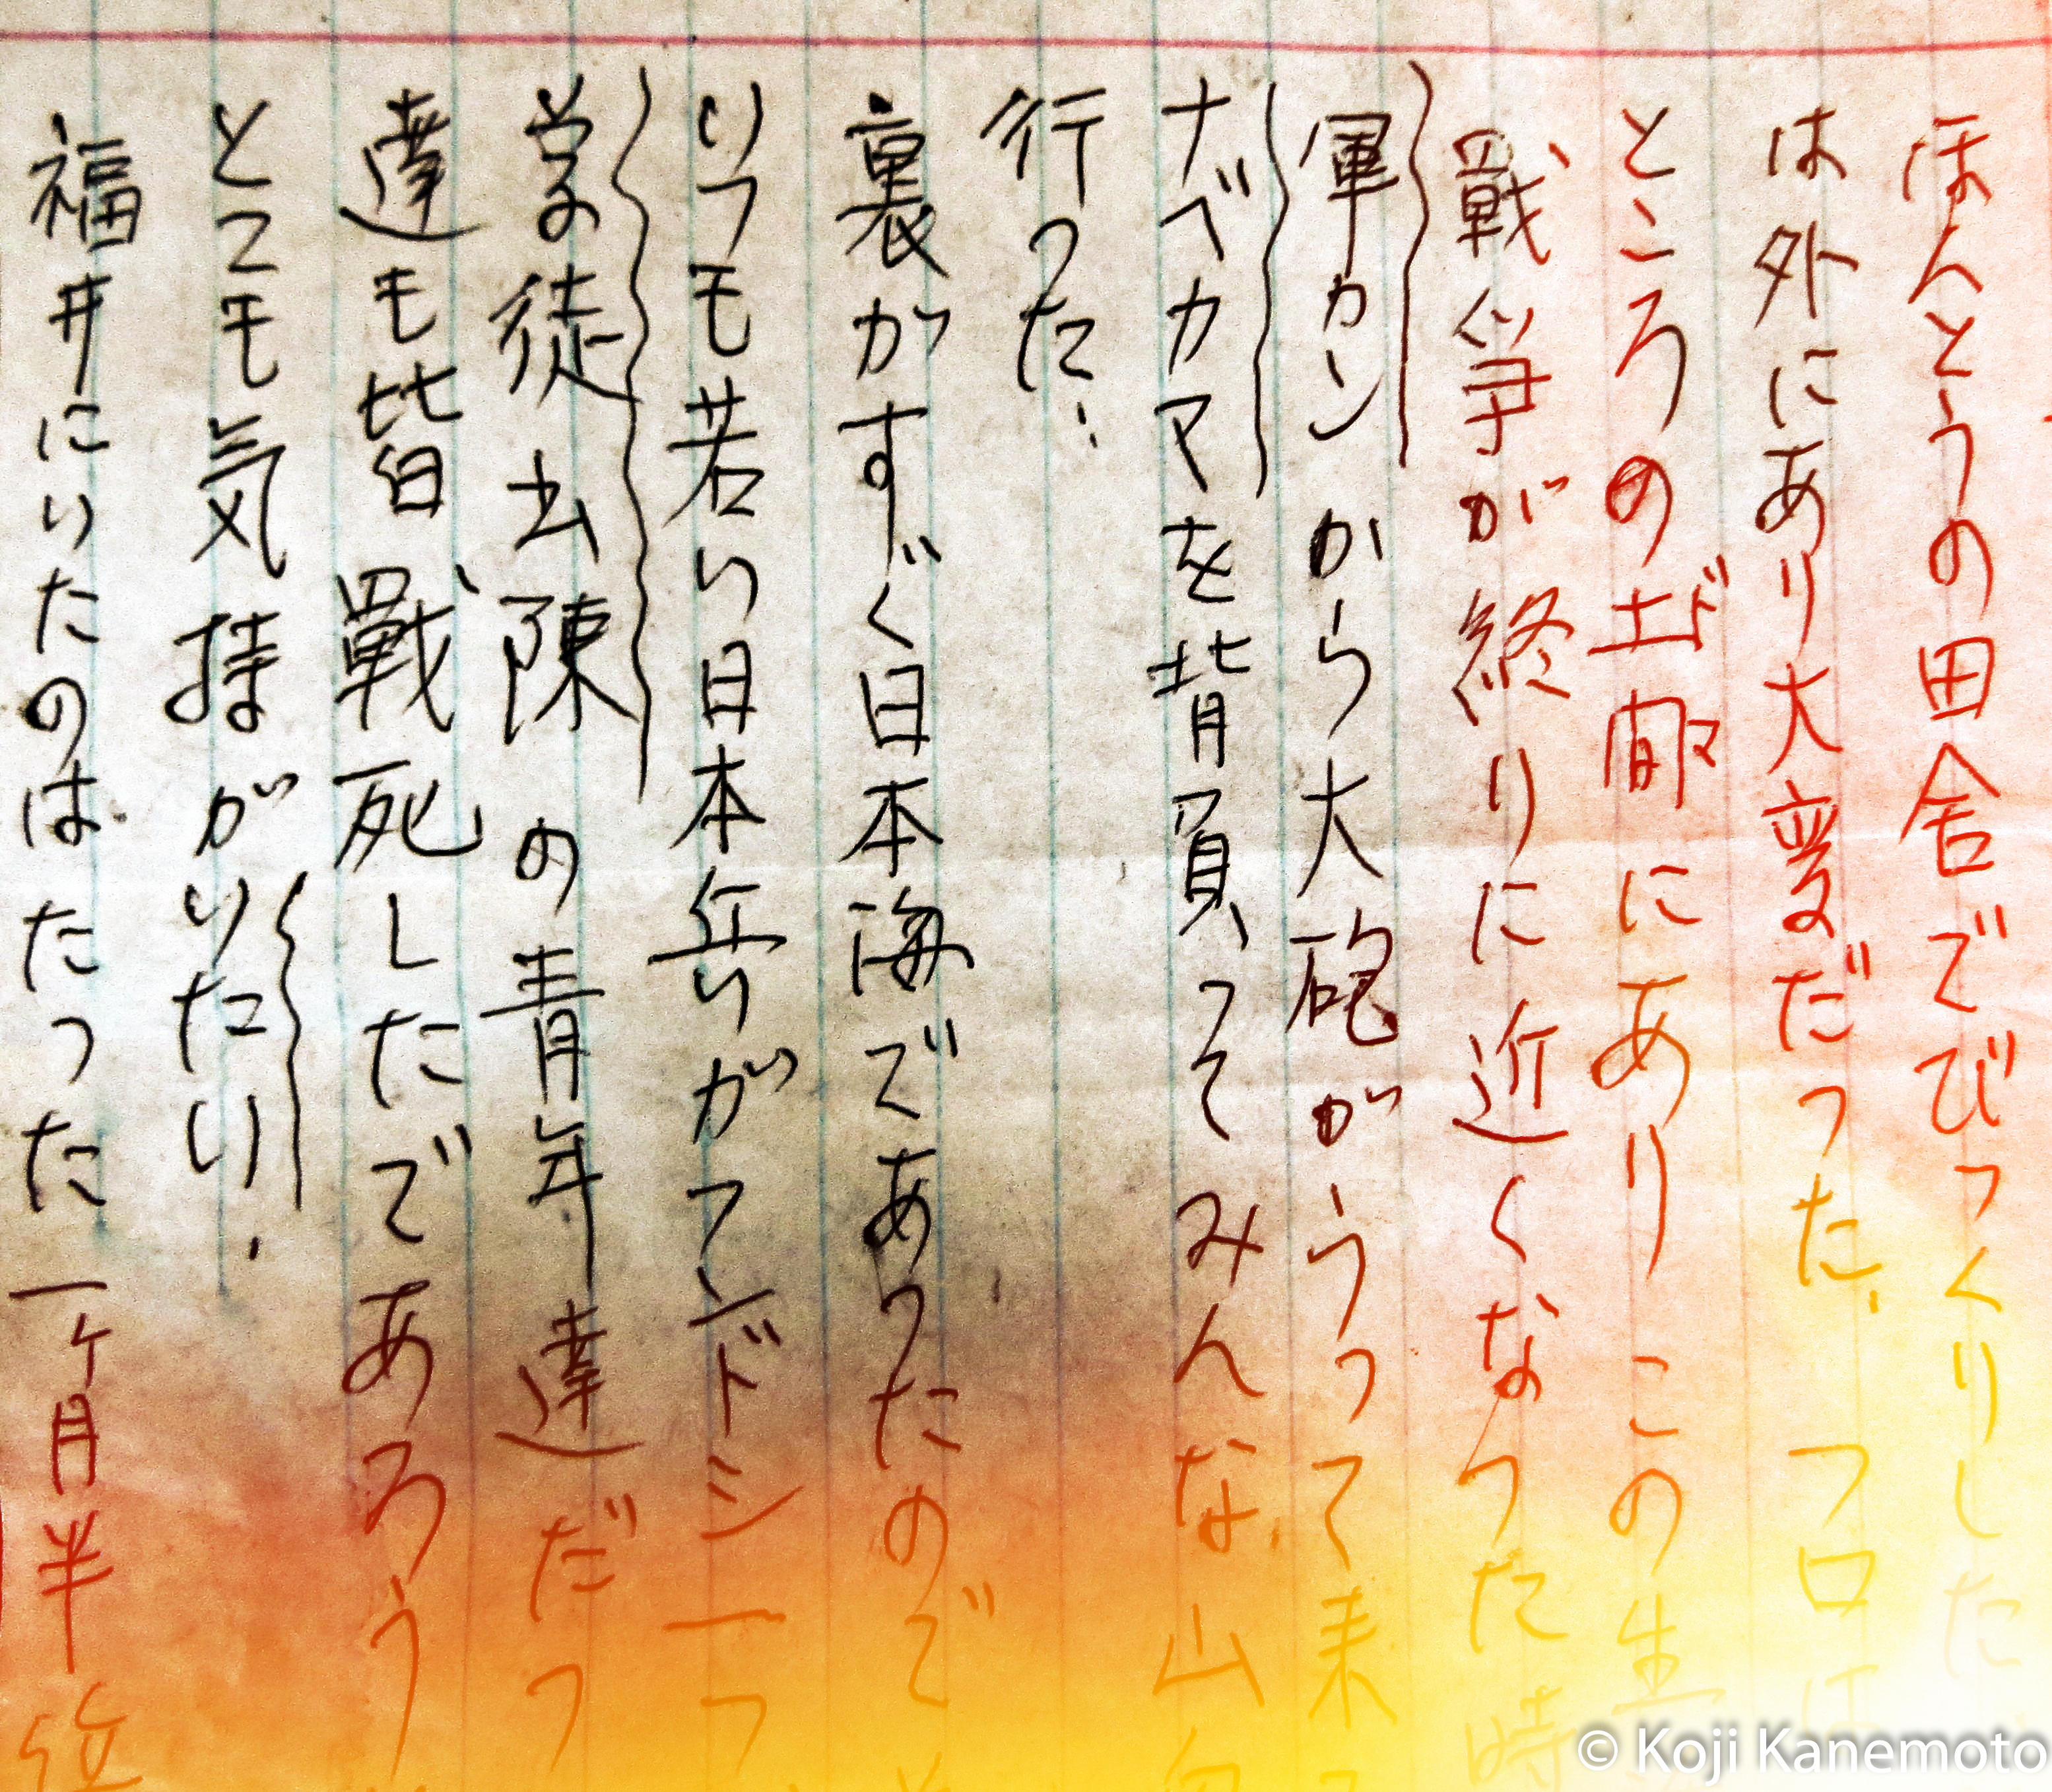 ほんとうの田舎でびっくりした
は外にあり大変だった、フロは
ところの土間にありこの生
戦争が終りに近くなった時
軍カンから大砲がうって来
ナベカマを背負ってみんな、山
行った、
裏がすぐ日本海であったので
いつも若い日本兵がてンドシ一つ
学る徒出陳の青年達だっ
達も皆戦死したであろう
とても気持がいたい、
福井にいたのはたった一ヶ月半位
© Koji Kanemoto